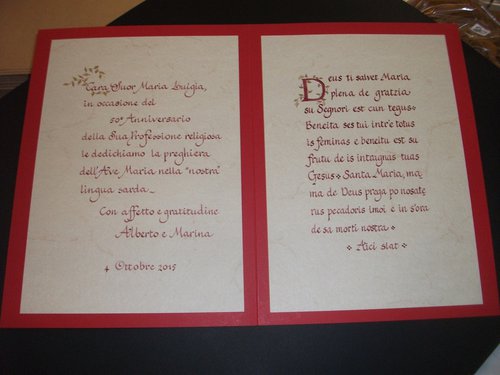 Cara Suor Maria Luigia,
in occasione del
50° Anniversario
della Sua Professione religiosa
le dedichiamo la preghiera
dell'Ave Maria nella "nostra"
lingua sarda_
Con affetto e gratitudine
Alberto e Marina
4 Ottobre 2015
Deus ti salvet Maria
plena de gratzia
su Segnori est cun tegus
Beneita ses tui intr'e totus
is feminas e beneitu est su
frutu de is intraignas tuas
Gesus Santa Maria, ma
ma de Deus prega po nosate
rus pecadoris imoi e in s'ora
de sa morti nostra
Aici siat